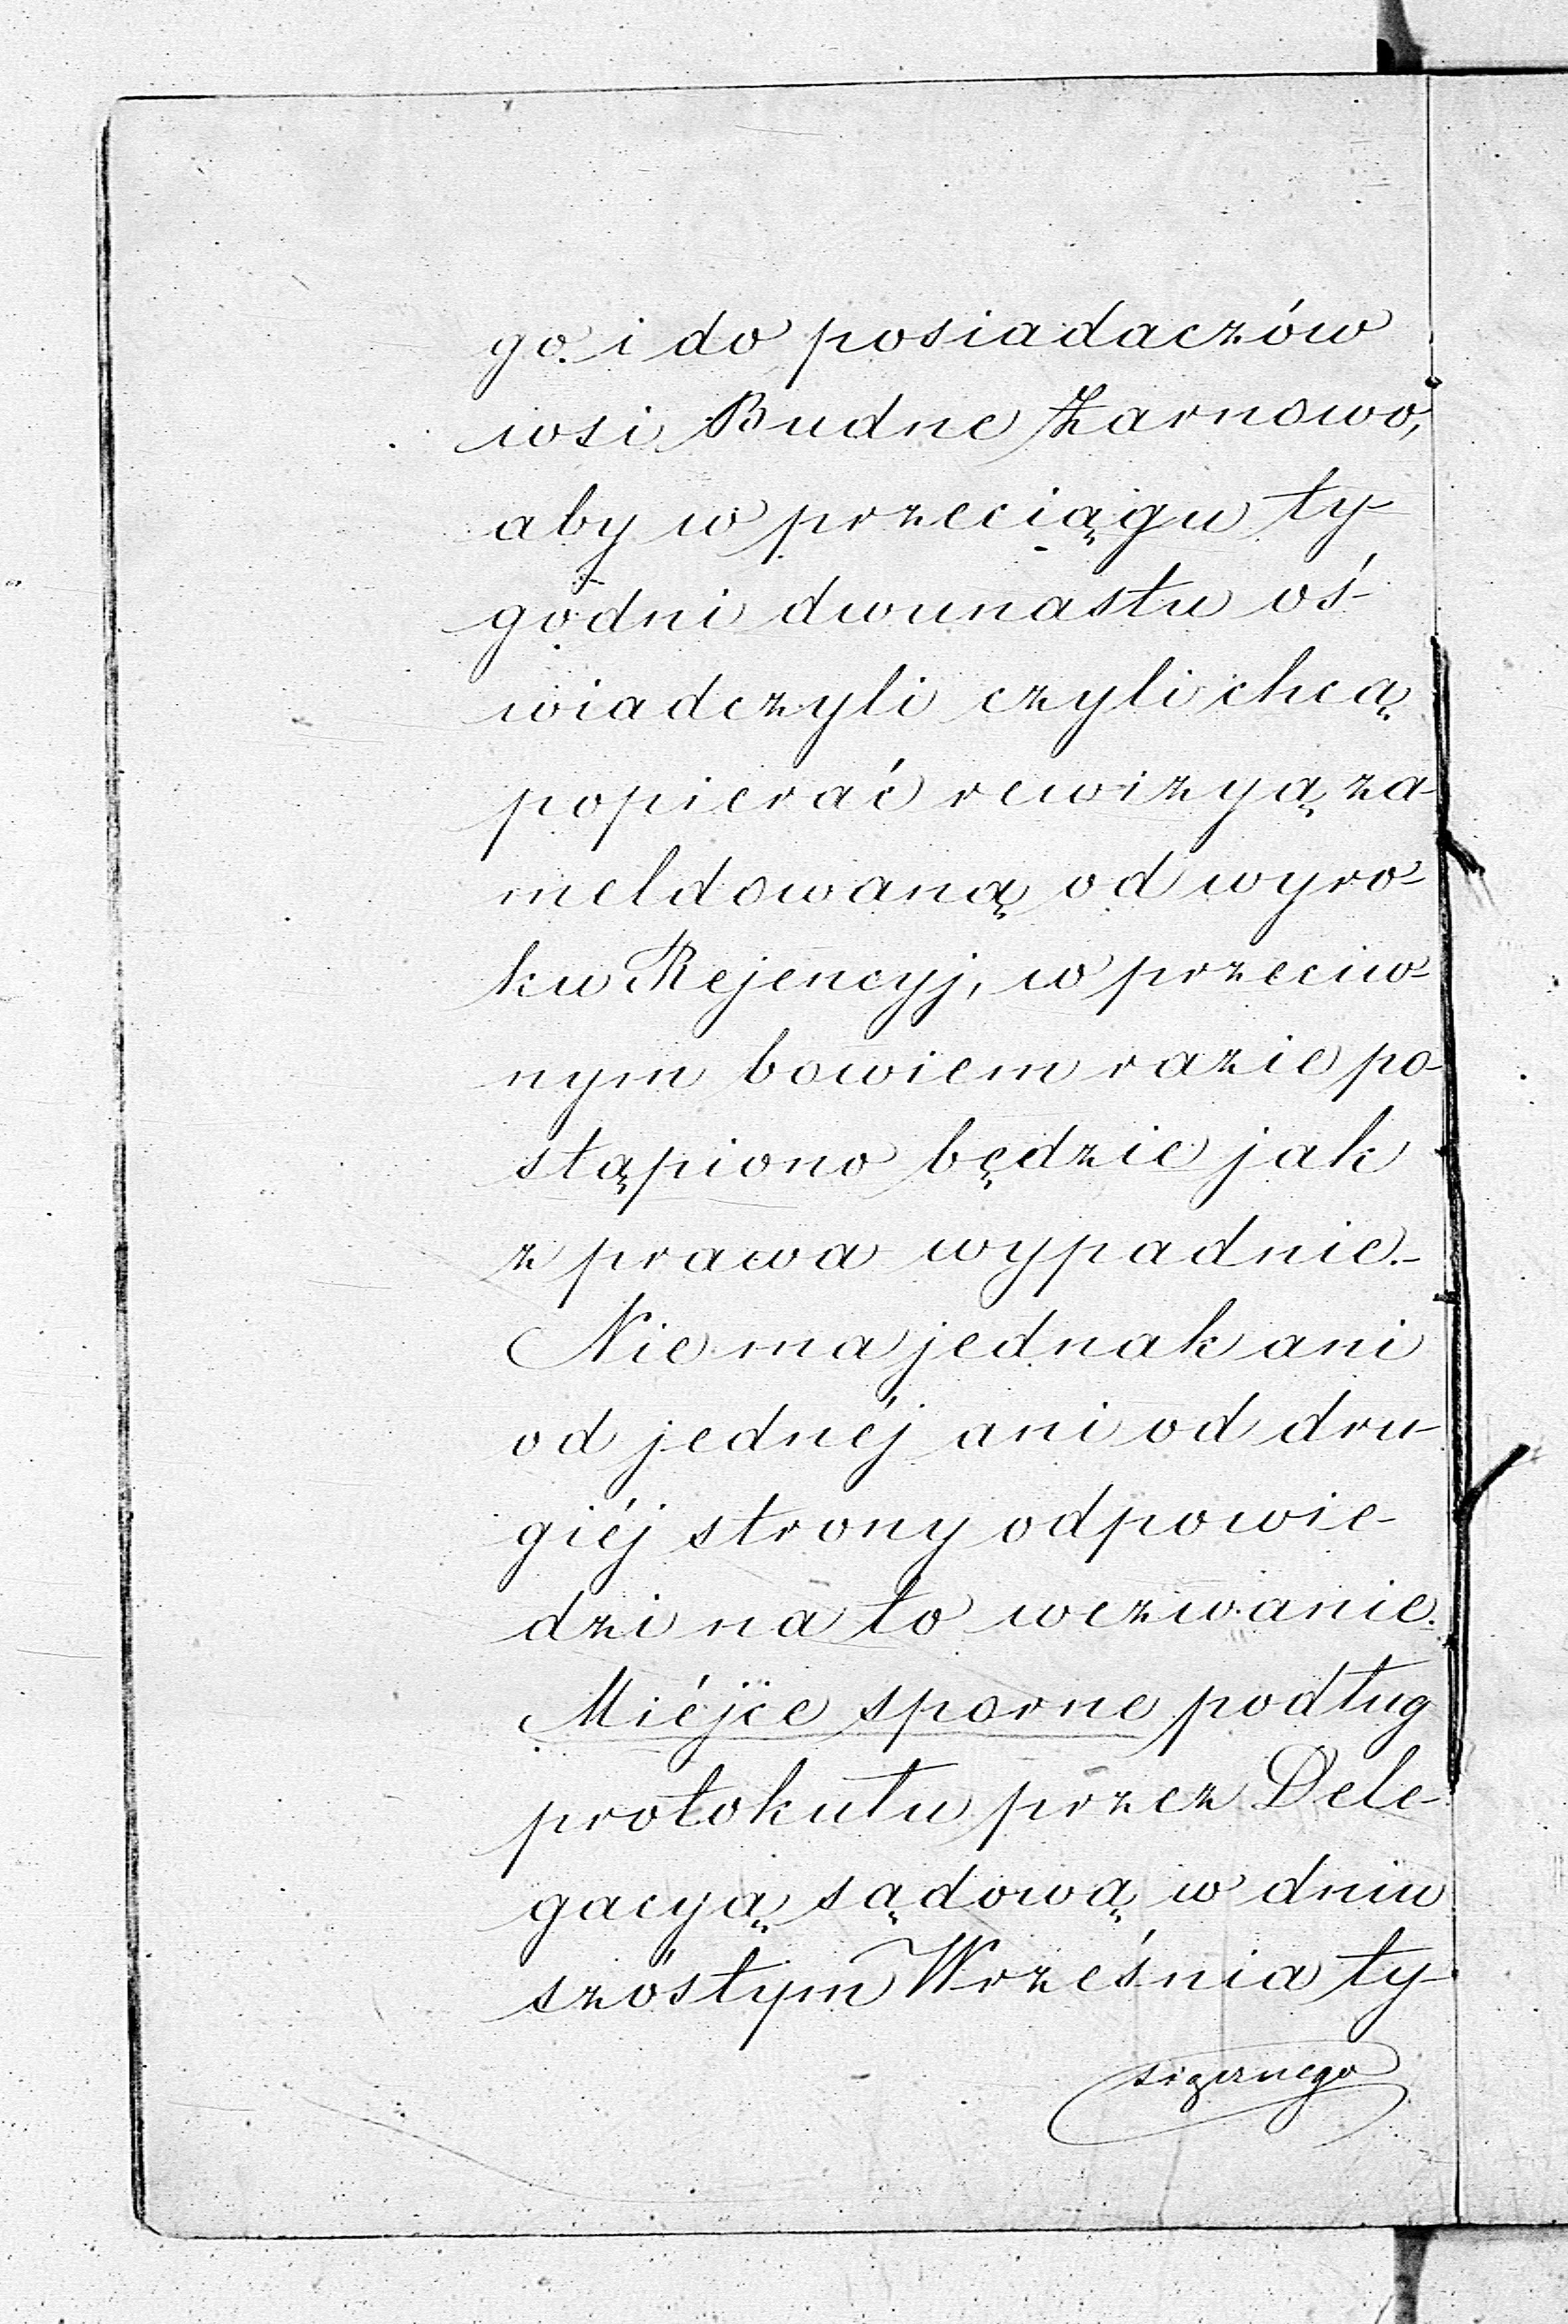 go i do posiadaczów
wsi Budne Żarnowo,
aby w przeciągu ty-
godni dwunastu oś-
wiadczyli czyli chcą
popierać rewizyą za-
meldowaną od wyro-
ku Rejencyj, w przeciw-
nym bowiem razie po-
stąpiono będzie jak
z prawa wypadnie.-
Nie ma jednak ani
od jednéj ani od dru-
giéj strony odpowie-
dzi na to wezwanie.
Miéjsce sporne podług
protokułu przez Dele-
gacyą sądową w dniu
szóstym Września ty-
siącznego